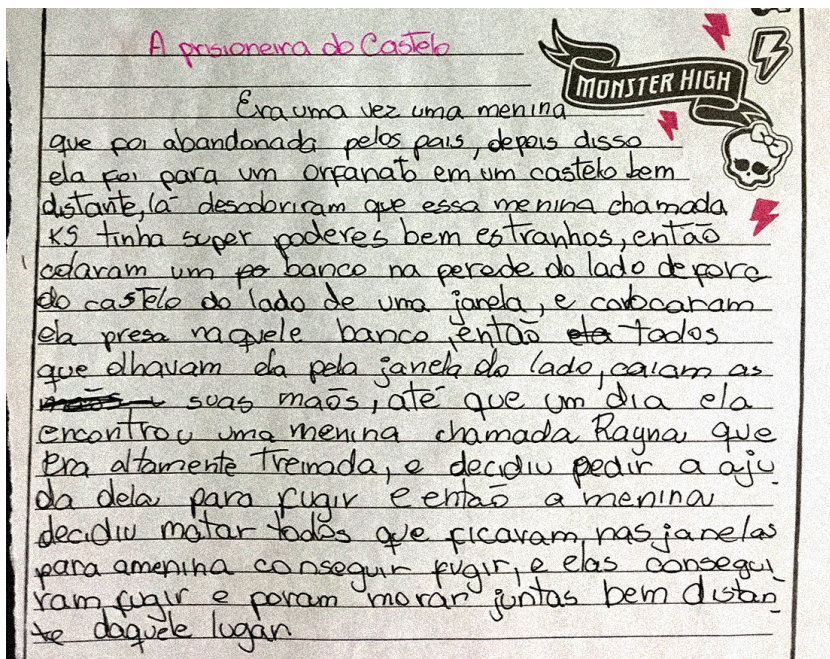 A prisioneira do Castelo
MONSTER HIGH
Era uma vez uma menina
que foi abandonada pelos pais, depois disso
ela foi para um orfanato em um castelo bem
distante, lá descobriram que essa menina chamada
KS tinha super poderes bem estranhos, então
colaram um banco na perede do lado de fora
do castelo do lado de uma janela, e colocaram
ela presa naquele banco, então todos
que olhavam ela pela janela do lado, caiam as
suas maõs, até que um dia ela
encontrou uma menina chamada Rayna que
era altamente Treinada, e decidiu pedir a aju
da dela para fugir e então a menina
decidiu matar todos que ficavam nas janelas
para amenina conseguir fugir, e elas consegui
ram fugir e foram morar juntas bem distan
te daquele lugar